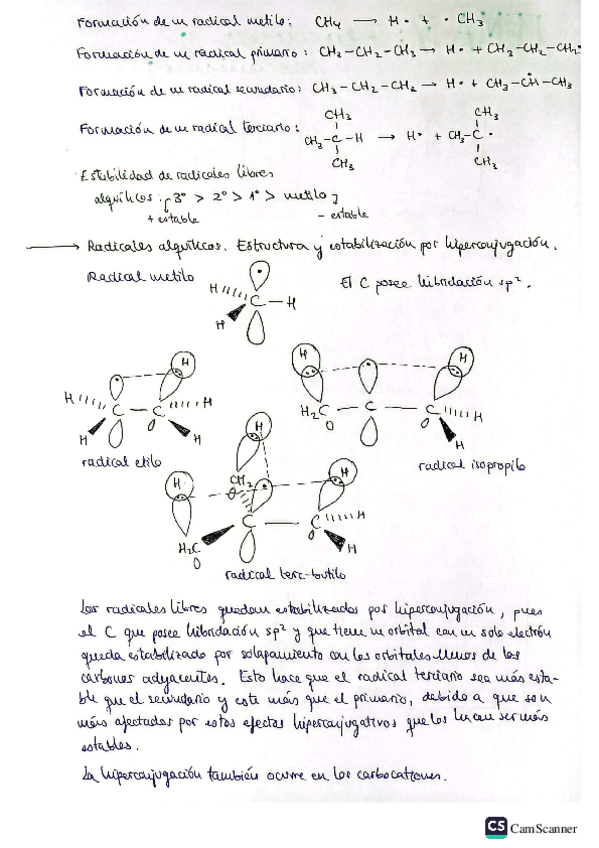 Formación de un radical metilo: CH4 → H· + ·CH3
Formación de un radical primario: CH3-CH2-CH3 → H· + CH3-CH2-CH2·
Formación de un radical secundario: CH3-CH2-CH3 → H· + CH3-ĊH-CH3
Formación de un radical terciario: CH3-C-H → H· + CH3-C·
CH3 CH3
CH3 CH3
Estabilidad de radicales libres
alquílicos: 3º > 2º > 1º > metilo
+ estable - estable
→ Radicales alquílicos. Estructura y estabilización por hiperconjugación.
Radical metilo
El C posee hibridación sp².
H C H
H
H H
H C C H
H H
radical etilo
H H
H2C C C H
H
radical isopropilo
H
CH2
H H
C C H
H2C H
radical terc-butilo
Los radicales libres quedan estabilizados por hiperconjugación, pues
el C que posee hibridación sp² y que tiene un orbital con un solo electrón
queda estabilizado por solapamiento con los orbitales llenos de los
carbonos adyacentes. Esto hace que el radical terciario sea más esta-
ble que el secundario y este más que el primario, debido a que son
más afectados por estos efectos hiperconjugativos que los hacen ser más
estables.
La hiperconjugación también ocurre en los carbocationes.
CS CamScanner